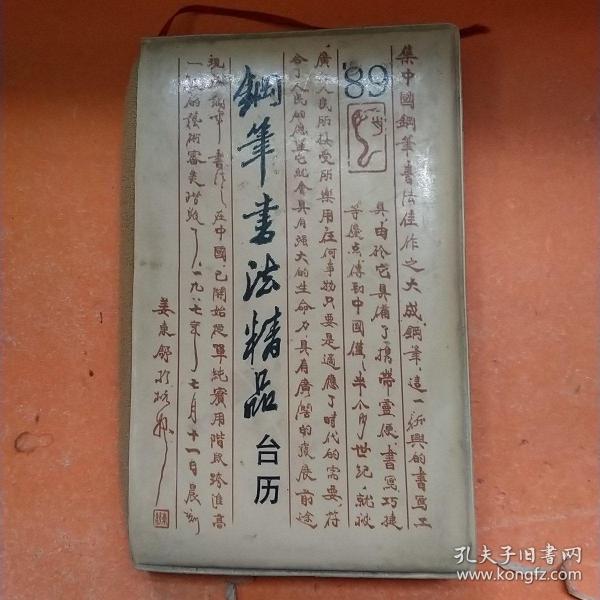 集中國鋼筆書法佳作之大成,鋼筆,這一新興的書寫工
具,由於它具備了攜帶靈便書寫巧捷
等優点傳到中國僅僅半个多世紀,就被
廣大人民所接受所樂用任何事物只要是適應了時代的需要,符
合了人民的它就會具有强大的生命力,具有廣濶的發展前途
現在鋼筆書法在中國已開始從單純實用階段跨進高
一級的藝術審美階段了,一九八七年七月十一日晨
姜東舒
'89
鋼筆書法精品
台历
孔夫子旧书网
www.kongfz.com